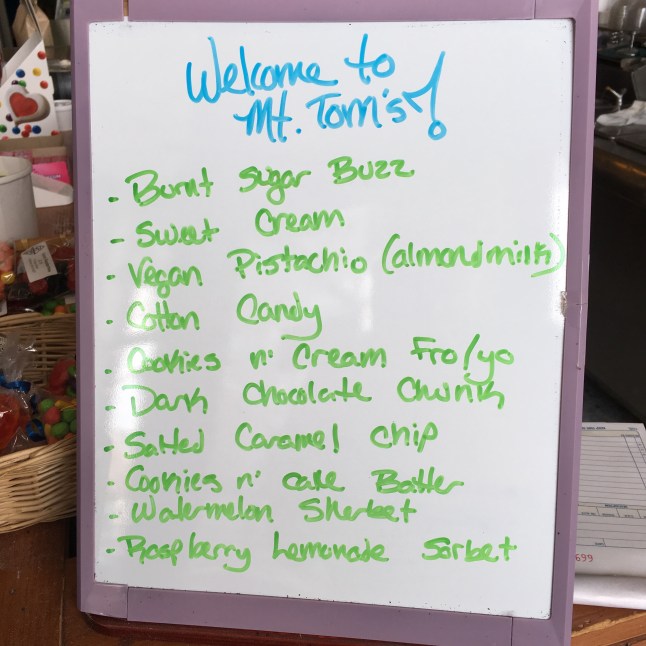 Welcome to
Mt. Tom's!
- Burnt Sugar Buzz
- Sweet Cream
- Vegan Pistachio (almondmilk)
- Cotton Candy
- Cookies n' Cream Fro/yo
- Dark Chocolate Chunk
- Salted Caramel Chip
- Cookies n' cake Batter
- Watermelon Sherbet
- Raspberry Lemonade Sorbet
699